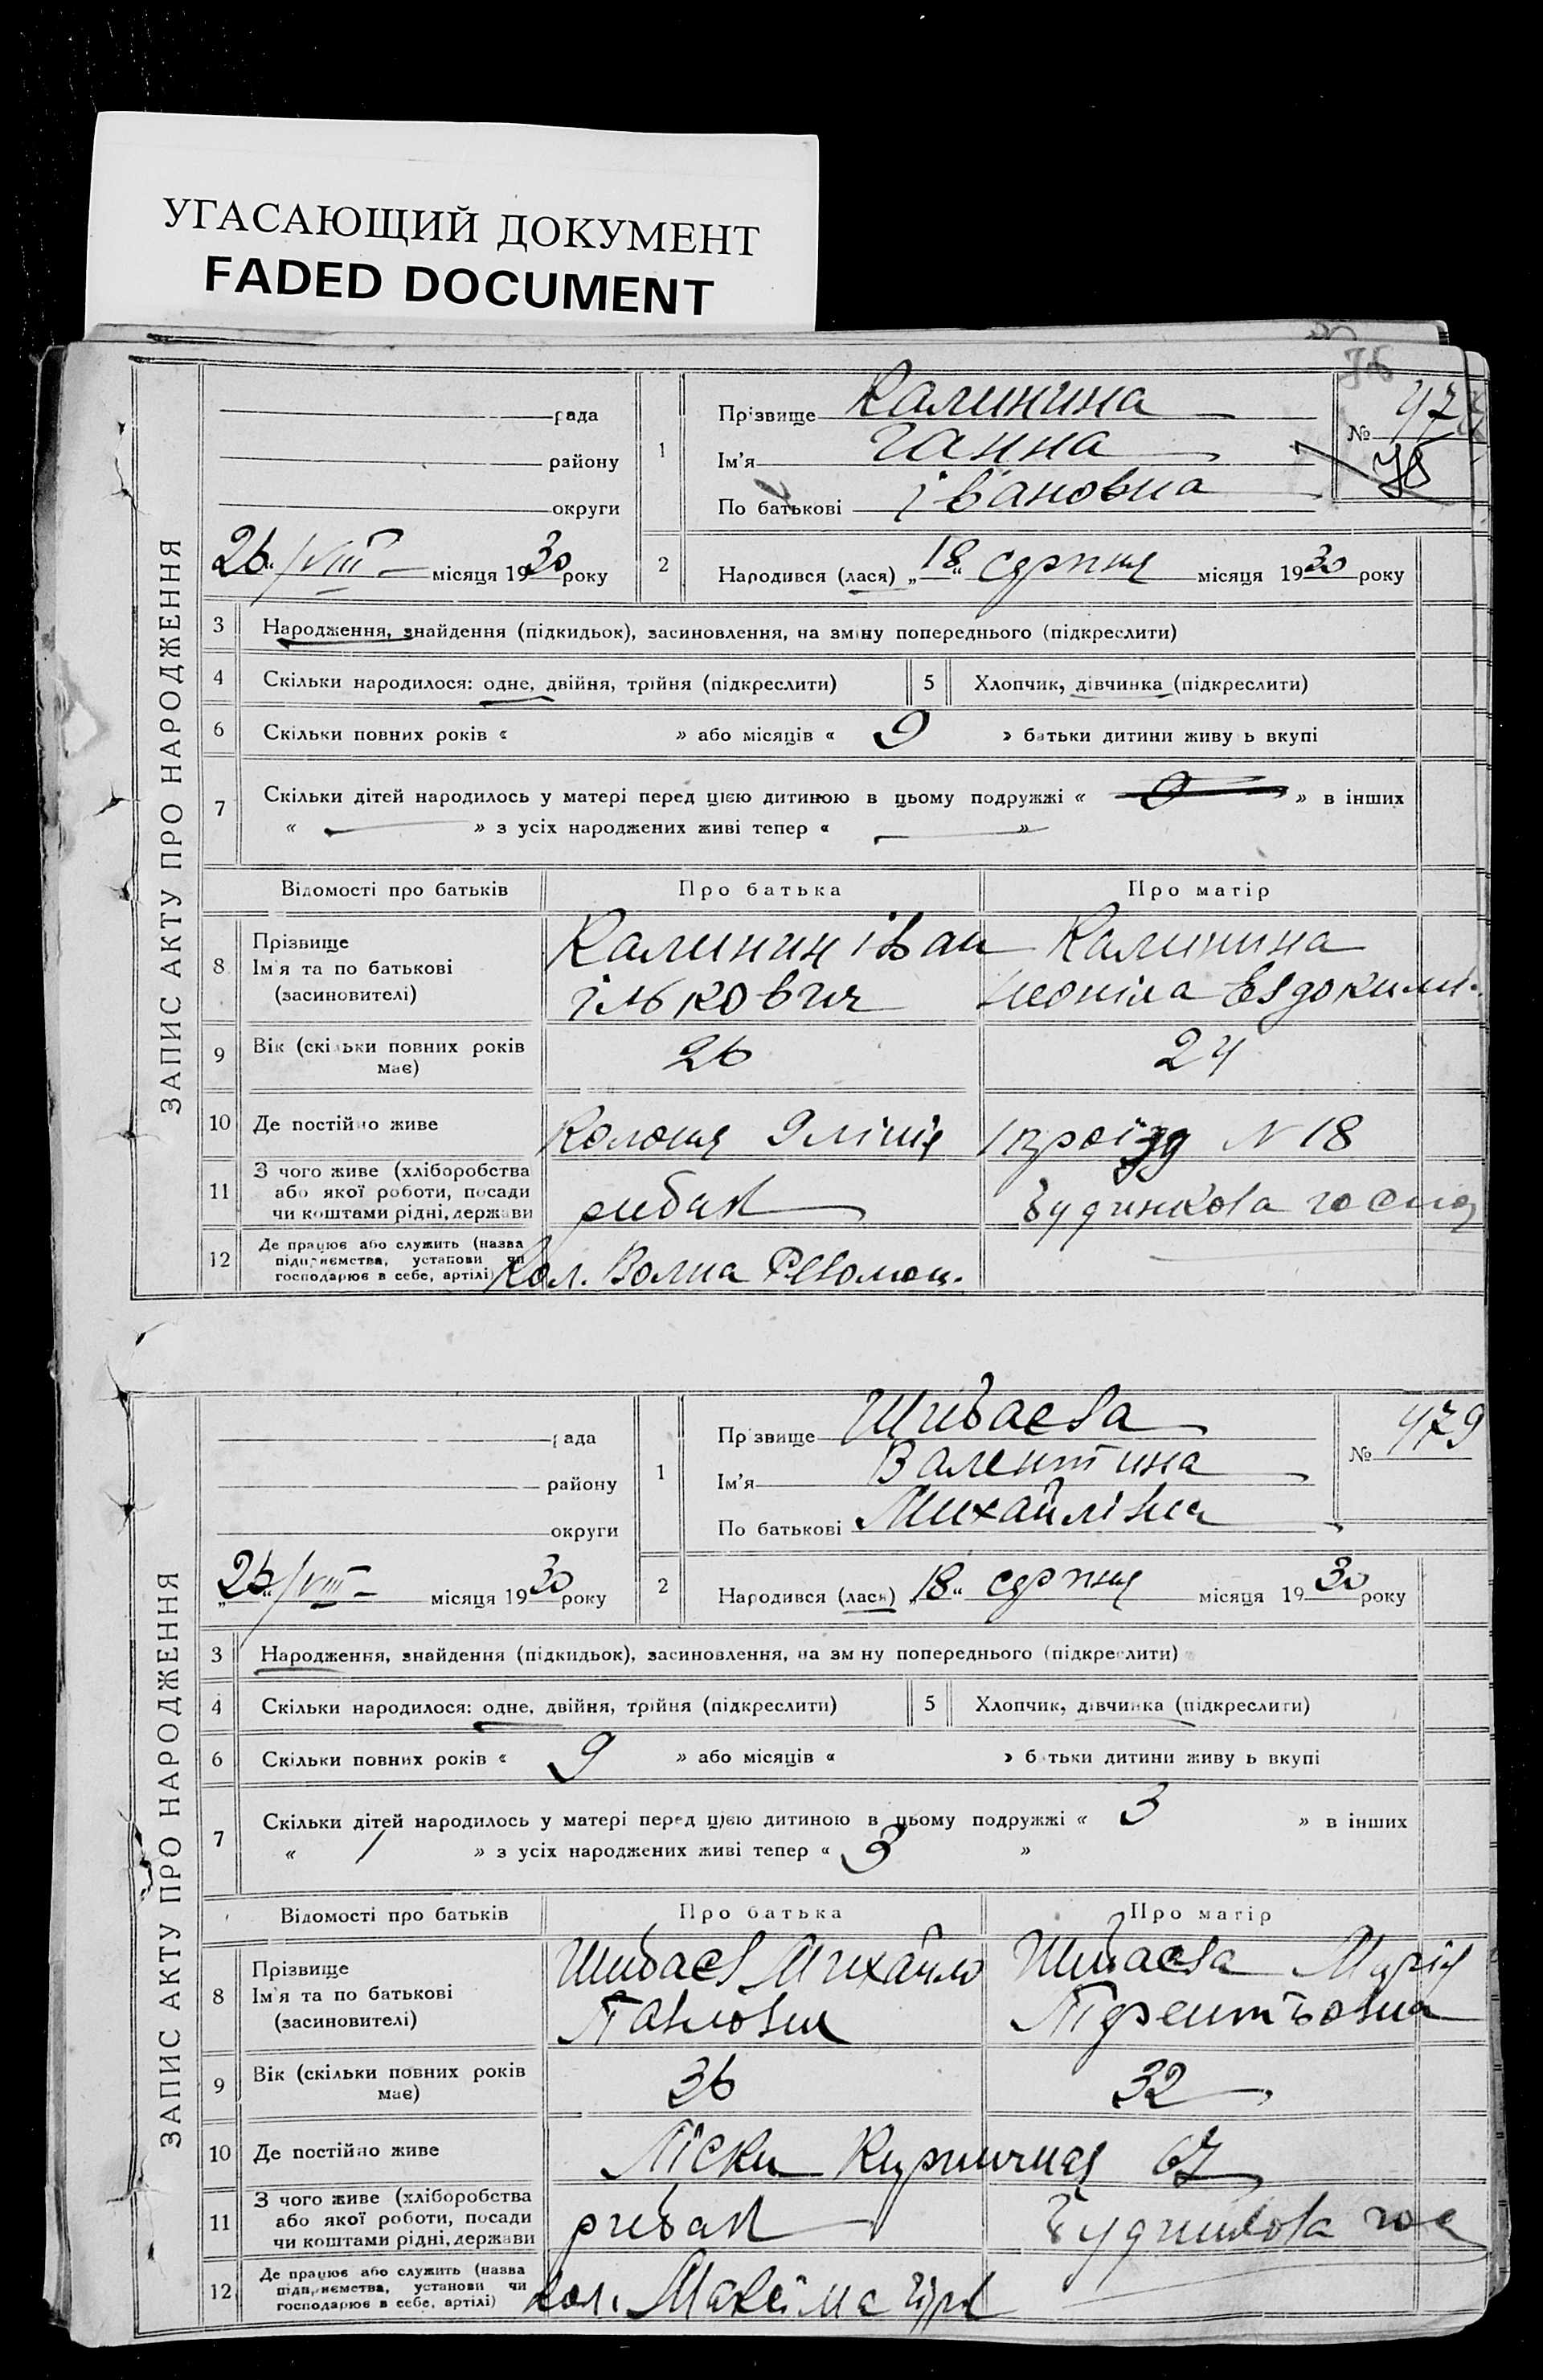 УГАСАЮЩИЙ ДОКУМЕНТ
FADED DOCUMENT
ЗАПИС АКТУ ПРО НАРОДЖЕННЯ
рада
району
округи
26 /VIII місяця 1930 року
1
Прізвище Калинина
Ім'я Ганна
По батькові івановна
№ 478
78
2
Народився (лася) „18“ серпня місяця 1930 року
3 Народження, знайдення (підкидьок), засиновлення, на зміну попереднього (підкреслити)
4 Скільки народилося: одне, двійня, трійня (підкреслити) 5 Хлопчик, дівчинка (підкреслити)
6 Скільки повних років « » або місяців « 9 » батьки дитини живу ь вкупі
7 Скільки дітей народилось у матері перед цією дитиною в цьому подружжі « 0 » в інших
« » з усіх народжених живі тепер « »
Відомості про батьків Про батька Про матір
8 Прізвище Ім'я та по батькові (засиновителі)
Калинин іван Калинина
ількович Евдоким.
9 Вік (скільки повних років має) 26 24
10 Де постійно живе Колонія 9 лінія 1 проізд N 18
11 З чого живе (хліборобства або якої роботи, посади чи коштами рідні, держави рибак будинкова госпо
12 Де працює або служить (назва підприємства, установи чи господарює в себе, артілі) Кол. Волна Революц.
ЗАПИС АКТУ ПРО НАРОДЖЕННЯ
рада
району
округи
„26“ /VIII місяця 1930 року
1
Прізвище Шибаєва
Ім'я Валентина
По батькові Михайлівна
№ 479
2
Народився (лася) „18“ серпня місяця 1930 року
3 Народження, знайдення (підкидьок), засиновлення, на зм ну попереднього (підкреслити)
4 Скільки народилося: одне, двійня, трійня (підкреслити) 5 Хлопчик, дівчинка (підкреслити)
6 Скільки повних років « 9 » або місяців « » б тьки дитини живу ь вкупі
7 Скільки дітей народилось у матері перед цією дитиною в цьому подружжі « 3 » в інших
« / » з усіх народжених живі тепер « 3 »
Відомості про батьків Про батька Про матір
8 Прізвище Ім'я та по батькові (засиновителі)
Шибаєв Михайло Шибаєва Марія
Павлович Тарентьовна
9 Вік (скільки повних років має) 36 32
10 Де постійно живе Піски Кирпична 67
11 З чого живе (хліборобства або якої роботи, посади чи коштами рідні, держави рибак будинкова гос
12 Де працює або служить (назва підприємства, установи чи господарює в себе, артілі) кол. Максіма